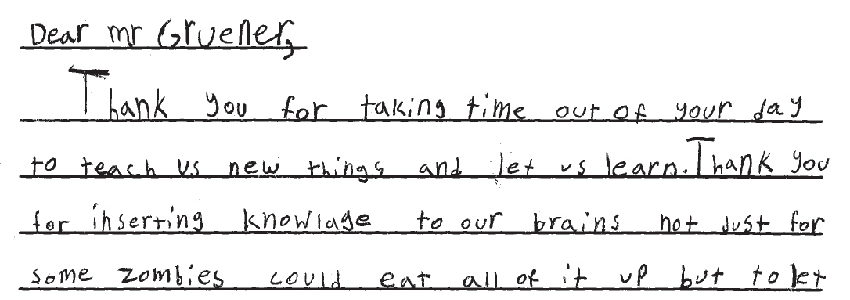 Dear mr Gruener,
Thank you for taking time out of your day
to teach us new things and let us learn. Thank you
for inserting knowlage to our brains not just for
some zombies could eat all of it up but to let